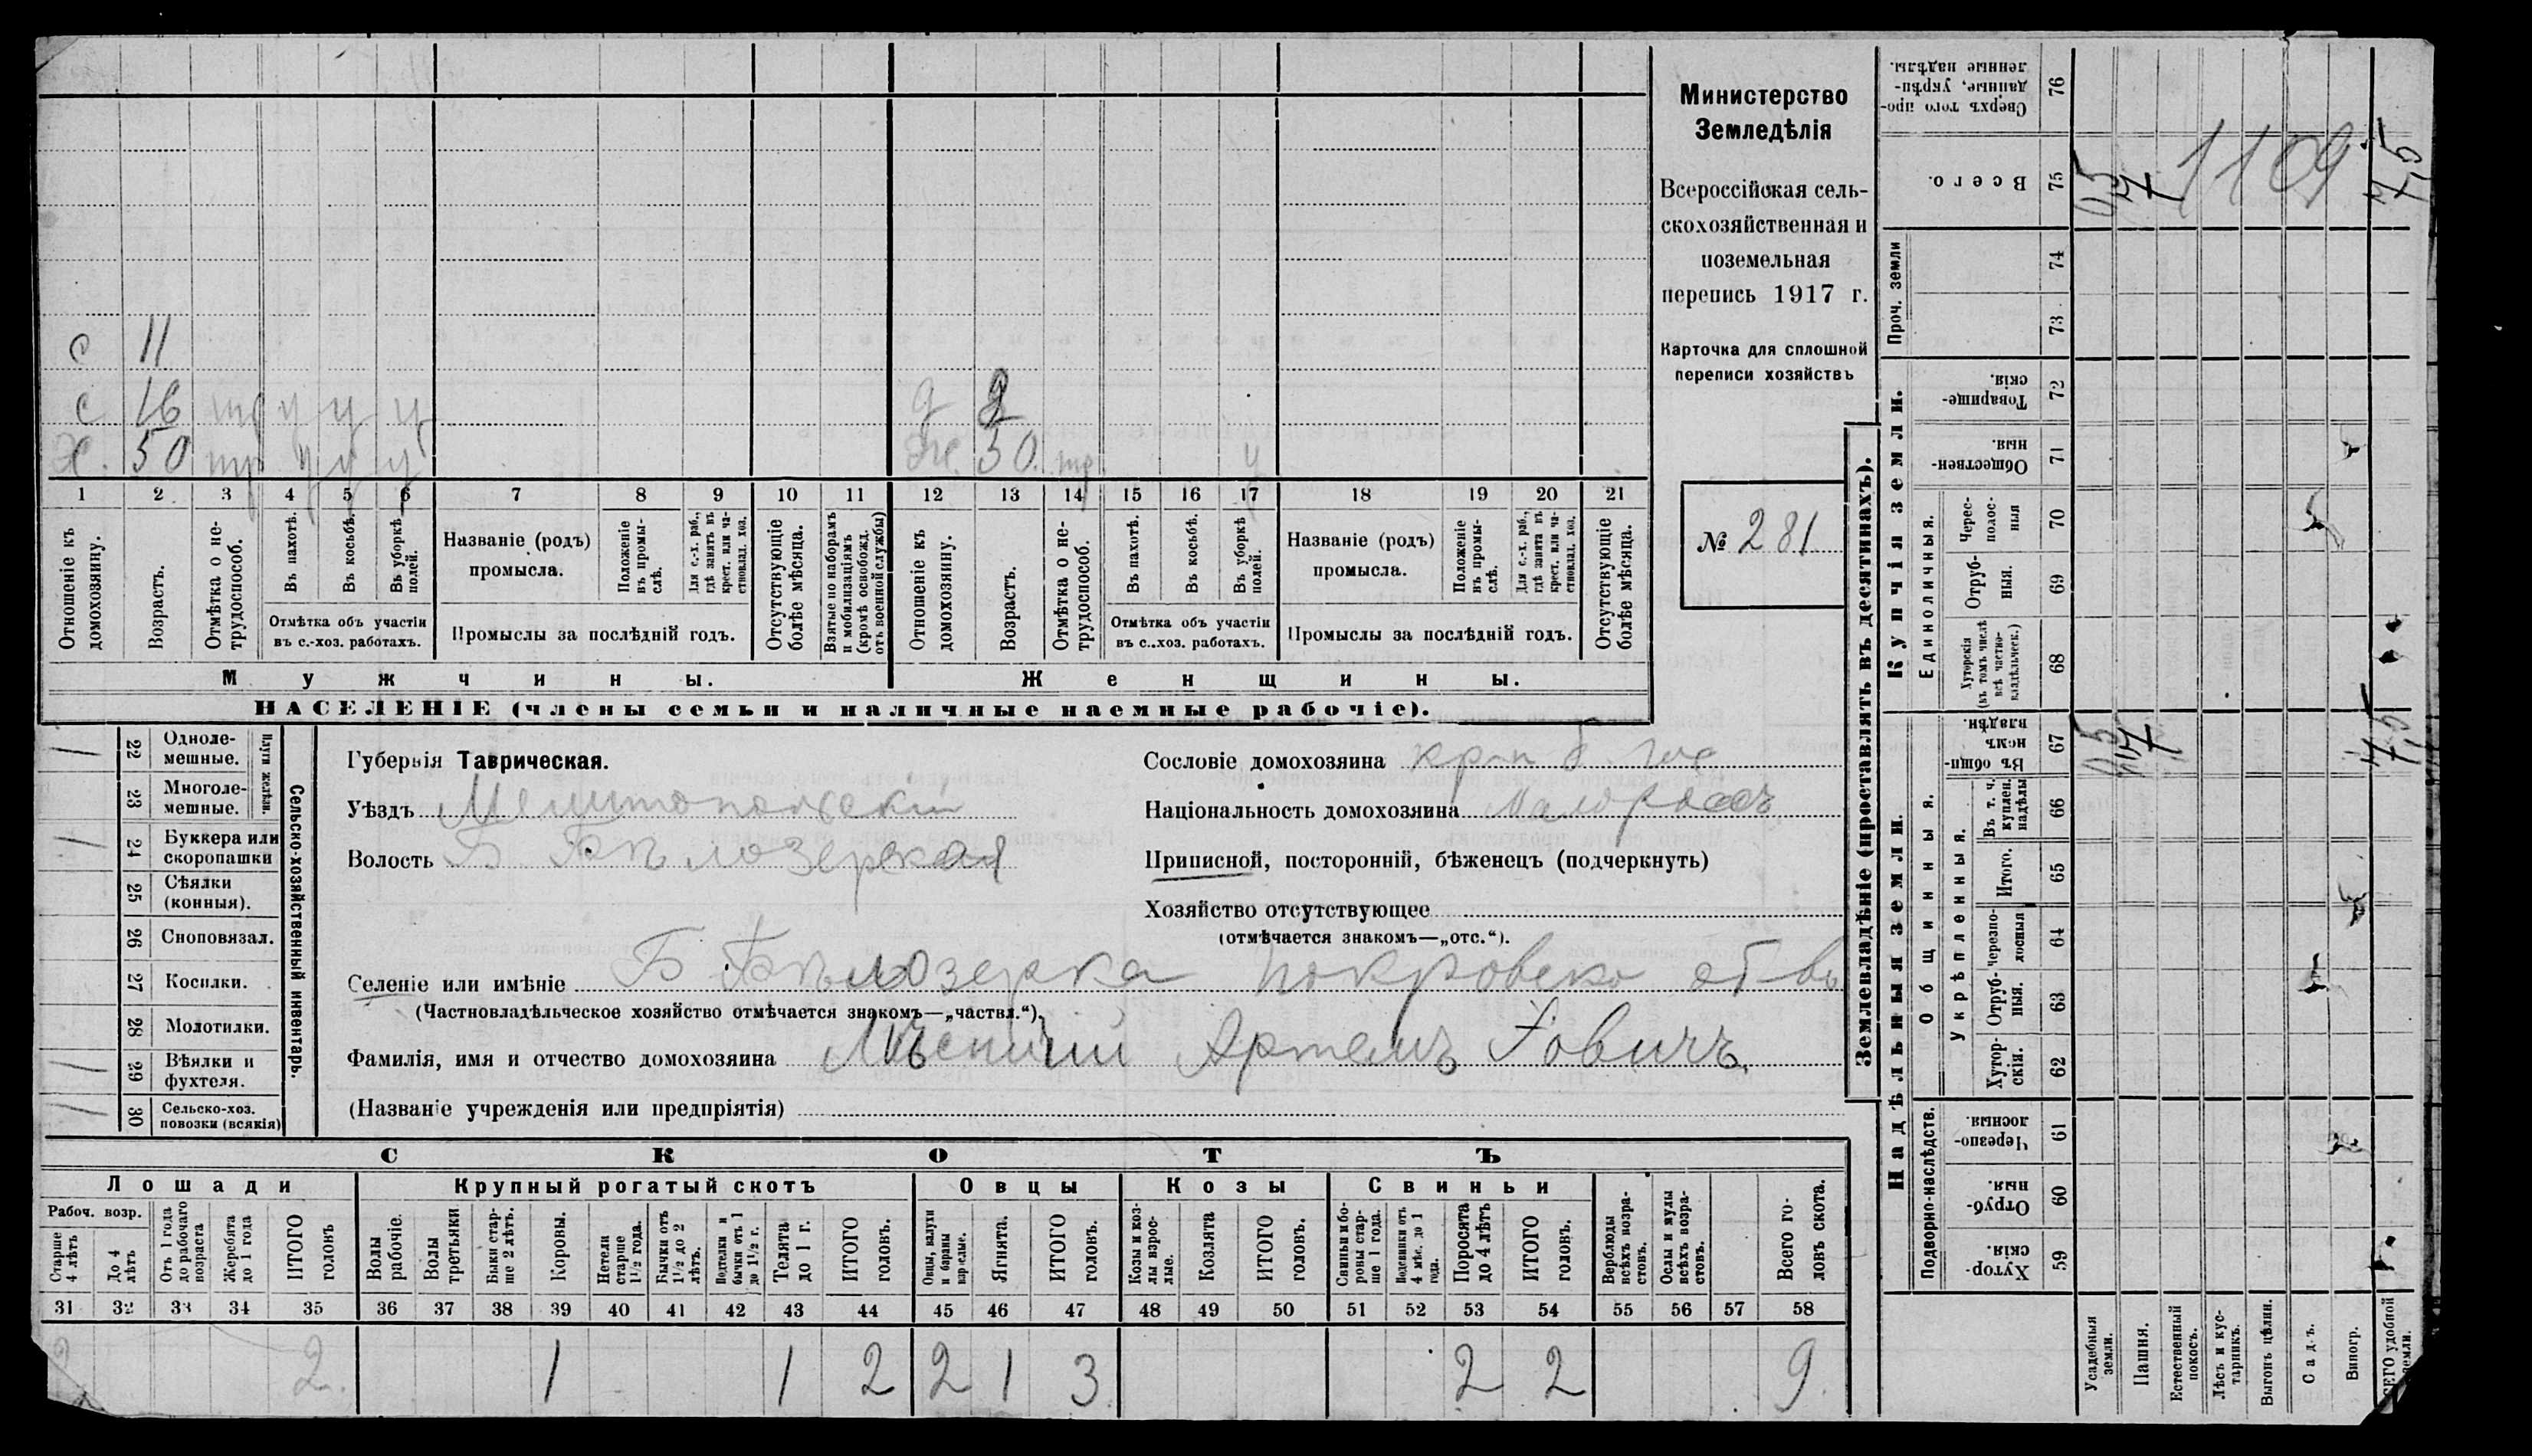 Министерство
Земледѣлія
Всероссійская сель-
скохозяйственная и
поземельная
перепись 1917 г.
Карточка для сплошной
переписи хозяйствъ
№ 281
с 11
с 16 тр у у у
Х. 50 тр у у у
д 2
Ж. 30. тр. у
1 2 3 4 5 6 7 8 9 10 11 12 13 14 15 16 17 18 19 20 21
Отношеніе къ домохозяину.
Возрастъ.
Отмѣтка о не-трудоспособ.
Въ пахотѣ.
Въ косьбѣ.
Въ уборкѣ полей.
Отмѣтка объ участіи
въ с.-хоз. работахъ.
Названіе (родъ)
промысла.
Положеніе въ промы-слѣ.
Для с.-х. раб., гдѣ занятъ въ крест. или ча-стновлад. хоз.
Промыслы за послѣдній годъ.
Отсутствующіе болѣе мѣсяца.
Взятые по наборамъ и мобилизаціямъ (кромѣ освобожд. отъ военной службы)
Отношеніе къ домохозяину.
Возрастъ.
Отмѣтка о не-трудоспособ.
Въ пахотѣ.
Въ косьбѣ.
Въ уборкѣ полей.
Отмѣтка объ участіи
въ с..хоз. работахъ.
Названіе (родъ)
промысла.
Положеніе въ промы-слѣ.
Для с.-х. раб., гдѣ занята въ крест. или ча-стновлад. хоз.
Промыслы за послѣдній годъ.
Отсутствующіе болѣе мѣсяца.
Мужчины. Женщины.
НАСЕЛЕНІЕ (члены семьи и наличные наемные рабочіе).
Сельско-хозяйственный инвентарь.
Плуги желѣзн.
1 22 Одноле-мешные.
23 Многоле-мешные.
1 24 Буккера или скоропашки
25 Сѣялки (конныя).
26 Сноповязал.
27 Косилки.
28 Молотилки.
1 29 Вѣялки и фухтеля.
1 30 Сельско-хоз. повозки (всякія)
Губернія Таврическая.
Уѣздъ Мелитопольскій
Волость Б Бѣлозерская
Сословіе домохозяина
Національность домохозяина Малороссъ
Приписной, посторонній, бѣженецъ (подчеркнуть)
Хозяйство отсутствующее
(отмѣчается знакомъ—„отс.“).
Селеніе или имѣніе Б Бѣлозерка Покровско об-во
(Частновладѣльческое хозяйство отмѣчается знакомъ—„частвл.“).
Фамилія, имя и отчество домохозяина Артемъ Іовичъ
(Названіе учрежденія или предпріятія)
СКОТЪ
Лошади Крупный рогатый скотъ Овцы Козы Свиньи
Рабоч. возр.
Старше 4 лѣтъ
До 4 лѣтъ
Отъ 1 года до рабочаго возраста
Жеребята до 1 года
ИТОГО головъ
Волы рабочіе.
Волы третьяки
Быки стар-ше 2 лѣтъ.
Коровы.
Нетели старше 1½ года.
Бычки отъ 1½ до 2 лѣтъ.
Подтелки и бычки отъ 1 до 1½ г.
Телята до 1 г.
ИТОГО головъ.
Овцы, валухи и бараны взрослые.
Ягнята.
ИТОГО головъ.
Козы и коз-лы взрос-лые.
Козлята
ИТОГО головъ.
Свиньи и бо-ровы стар-ше 1 года.
Подсвинки отъ 4 мѣс. до 1 года.
Поросята до 4 лѣтъ
ИТОГО головъ.
Верблюды всѣхъ возра-стовъ.
Ослы и мулы всѣхъ возра-стовъ.
Всего го-ловъ скота.
31 32 33 34 35 36 37 38 39 40 41 42 43 44 45 46 47 48 49 50 51 52 53 54 55 56 57 58
2 2. 1 1 2 2 1 3 2 2 9.
Землевладѣніе (проставлять въ десятинахъ).
Купчія земли.
Надѣльныя земли.
Сверхъ того про-данные, укрѣп-ленные надѣлы. 76
Всего. 75 1109
Проч. земли 74 73
Товарище-скія. 72
Обществен-ныя. 71
Единоличныя.
Черес-полос-ныя 70
Отруб-ныя. 69
Хуторскія (въ томъ числѣ всѣ частно-владѣльческ.) 68
Общинныя.
Въ общин-номъ владѣн. 67
Укрѣпленныя.
Въ т. ч. куплен. надѣлы 66
Итого. 65
Черезпо-лосныя 64
Отруб-ныя. 63
Хутор-скія. 62
Подворно-наслѣдств.
Черезпо-лосныя. 61
Отруб-ныя. 60
Хутор-скія. 59
Усадебныя земли.
Пашня.
Естественный покосъ.
Лѣсъ и кус-тарникъ.
Выгонъ цѣлин.
Садъ.
Виногр.
ВСЕГО удобной земли.